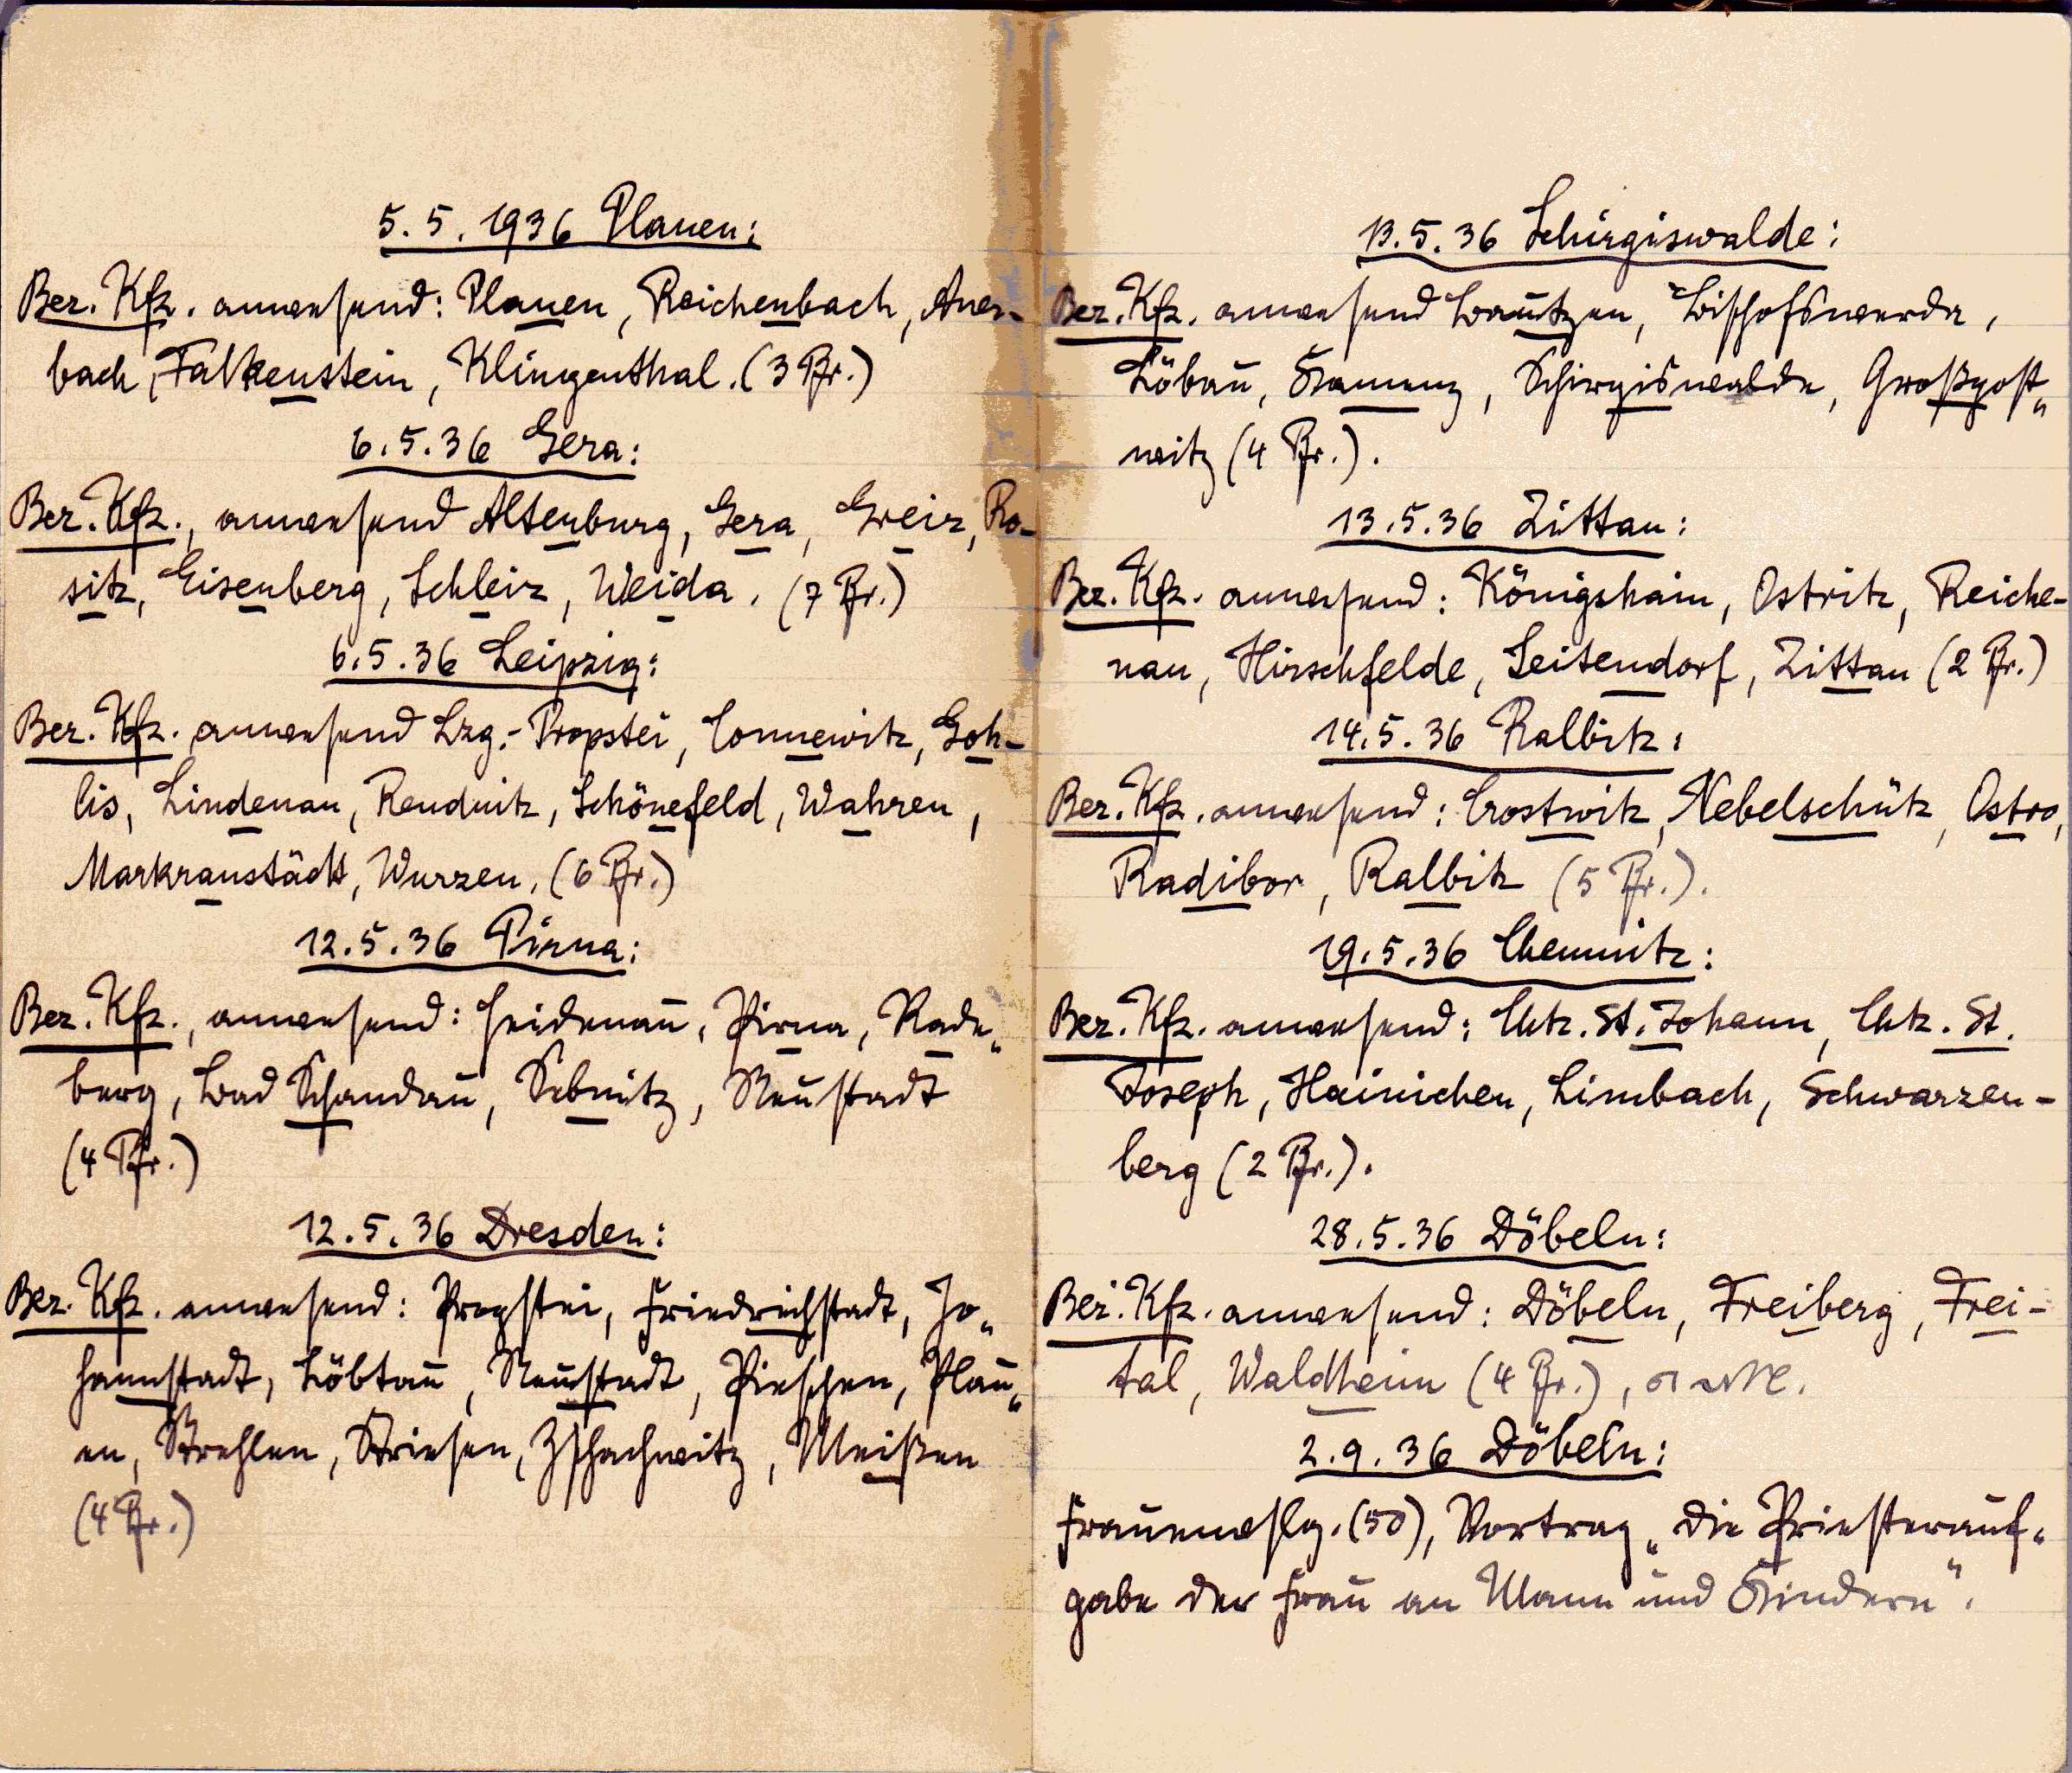 5.5.1936 Plauen:
Bez. Kfz. anwesend: Plauen, Reichenbach, Auer-
bach, Falkenstein, Klingenthal. (3 Pfr.)
6.5.36 Gera:
Bez. Kfz., anwesend Altenburg, Gera, Greiz, Ro-
sitz, Eisenberg, Schleiz, Weida. (7 Pfr.)
6.5.36 Leipzig:
Bez. Kfz. anwesend Lzg.-Propstei, Connewitz, Goh-
lis, Lindenau, Reudnitz, Schönefeld, Wahren,
Markranstädt, Wurzen. (6 Pfr.)
12.5.36 Pirna:
Bez. Kfz., anwesend: Heidenau, Pirna, Rade-
berg, Bad Schandau, Sebnitz, Neustadt
(4 Pfr.)
12.5.36 Dresden:
Bez. Kfz. anwesend: Propstei, Friedrichstadt, Jo-
hannstadt, Löbtau, Neustadt, Pieschen, Plau-
en, Strehlen, Striesen, Zschachwitz, Meißen
(4 Pfr.)
13.5.36 Schirgiswalde:
Bez. Kfz. anwesend Bautzen, Bischofswerda,
Löbau, Kamenz, Schirgiswalde, Großpost-
witz (4 Pfr.).
13.5.36 Zittau:
Bez. Kfz. anwesend: Königshain, Ostritz, Reiche-
nau, Hirschfelde, Seitendorf, Zittau (2 Pfr.)
14.5.36 Ralbitz:
Bez. Kfz. anwesend: Crostwitz, Nebelschütz, Ostro,
Radibor, Ralbitz (5 Pfr.).
19.5.36 Chemnitz:
Bez. Kfz. anwesend: Chtz. St. Johann, Chtz. St.
Joseph, Hainichen, Limbach, Schwarzen-
berg (2 Pfr.).
28.5.36 Döbeln:
Bez. Kfz. anwesend: Döbeln, Freiberg, Frei-
tal, Waldheim (4 Pfr.),
2.9.36 Döbeln:
Frauenvslg. (50), Vortrag „Die Priesterauf-
gabe der Frau an Mann und Kindern".